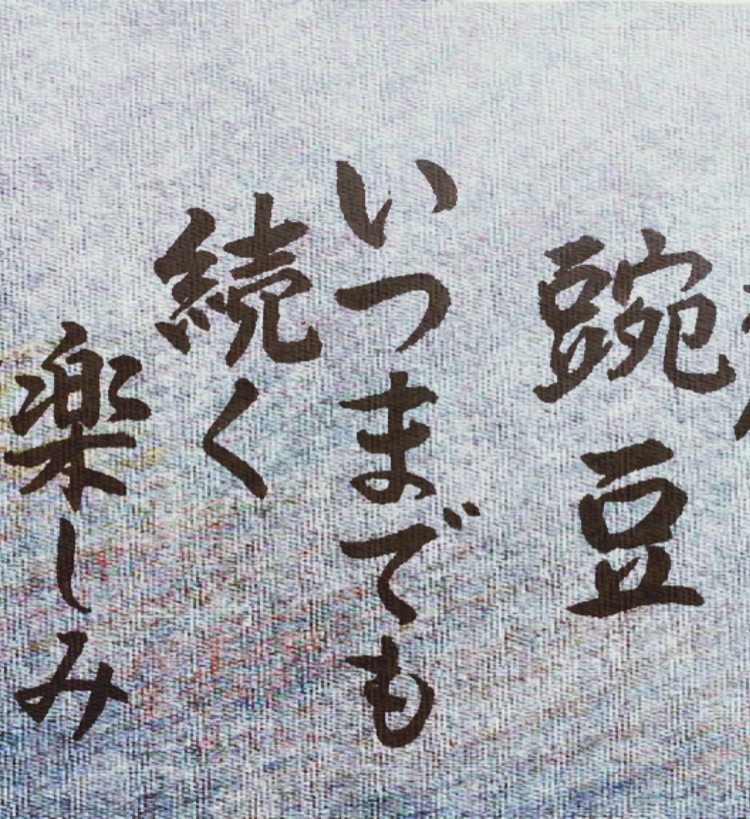 豌豆
いつまでも
続く
楽しみ